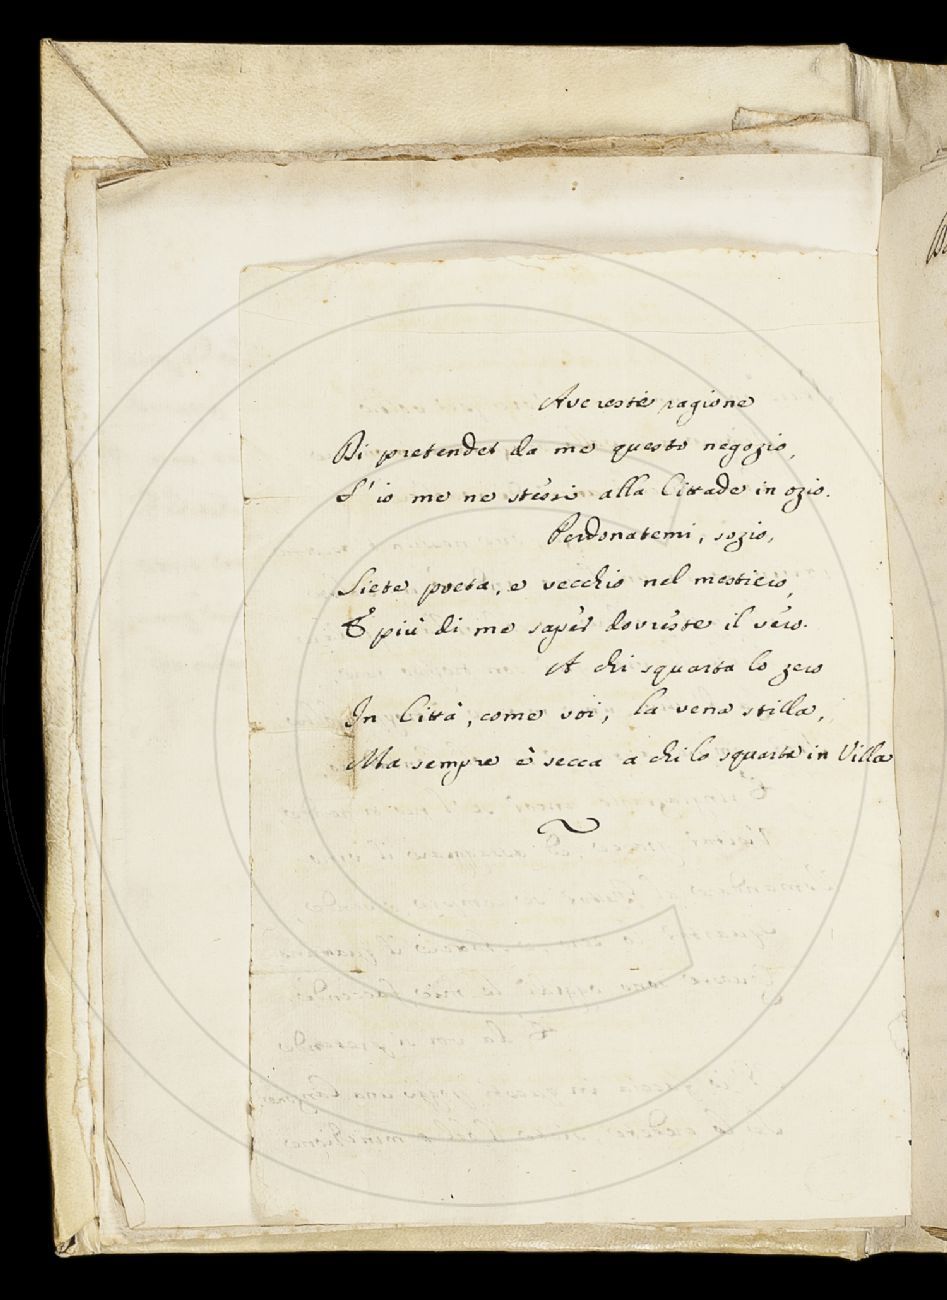 Avereste ragione
Di pretender da me questo negozio,
S'io me ne stessi alla Cittade in ozio.
Perdonatemi, sozio,
Siete poeta, e vecchio nel mestiero,
E più di me saper dovreste il vero.
A chi squarta lo zero
In Città, come voi, la vena stilla,
Ma sempre è secca a chi lo squarta in Villa